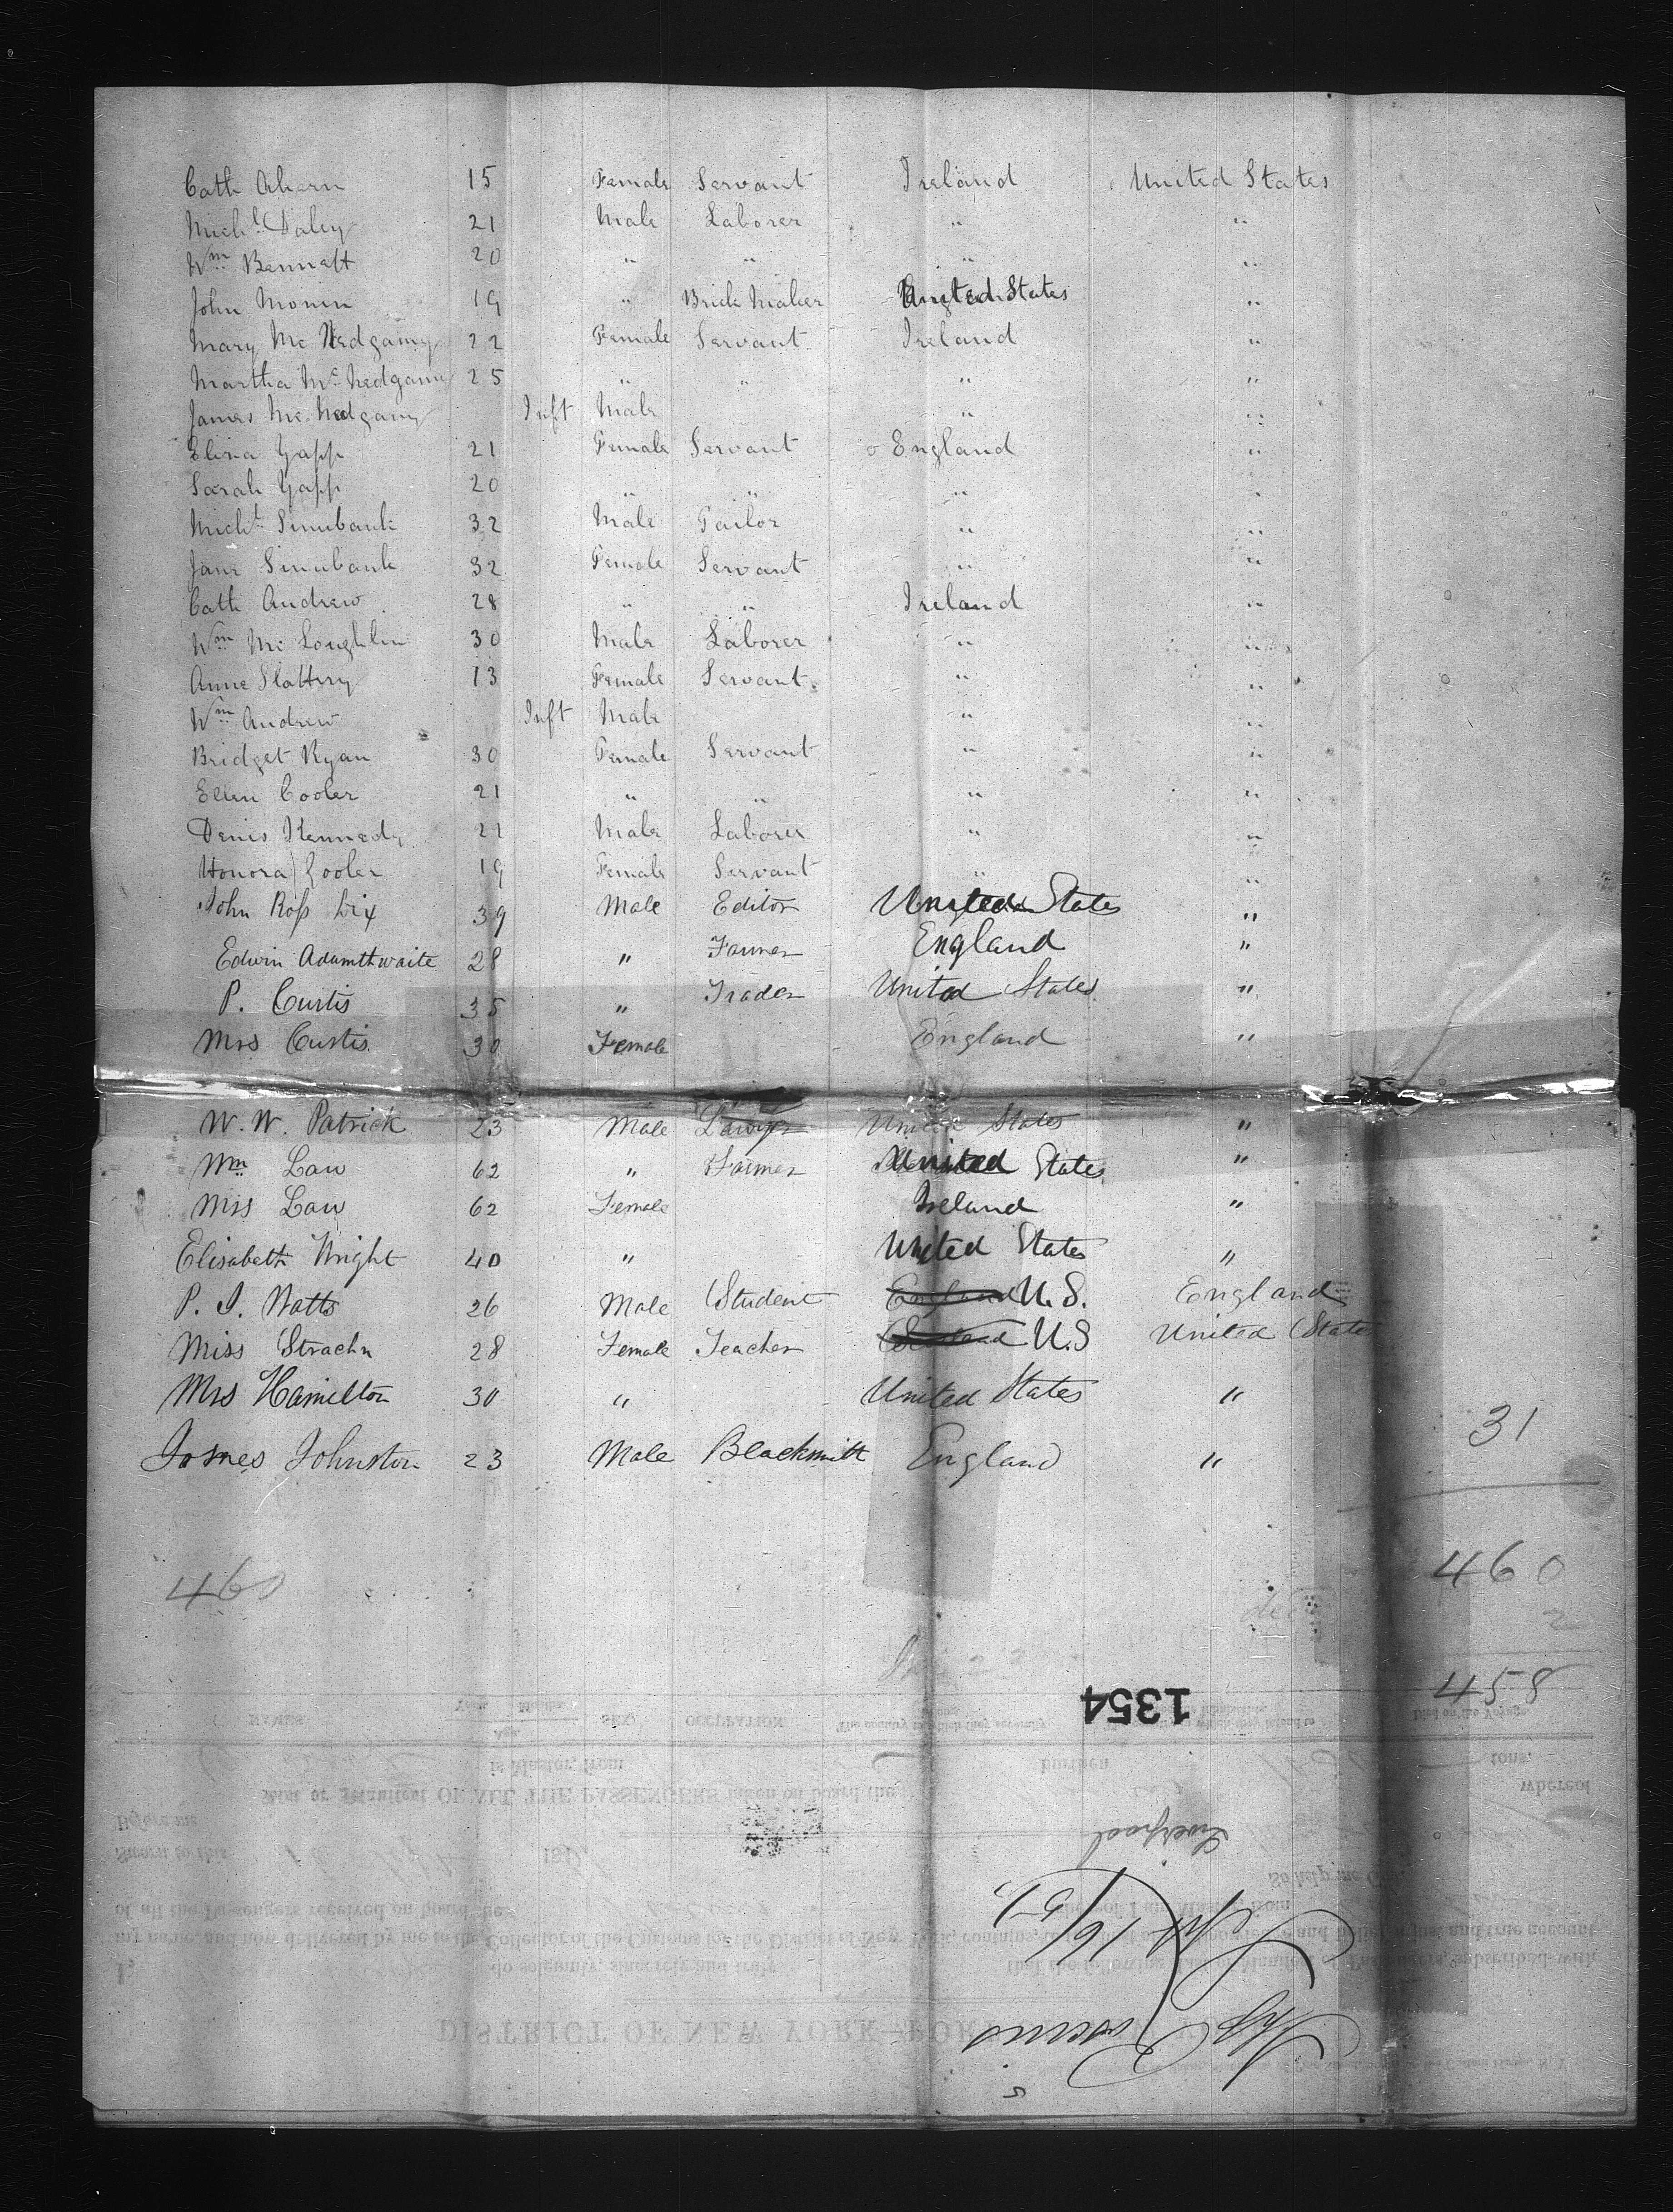 Cath Ahern 15 Female Servant Ireland United States
Michl Daley 21 Male Laborer " "
Wm Bennett 20 " " " "
John Monin 19 " Brick Maker United States "
Mary Mc Nedgamy 22 Female Servant Ireland "
Martha Mc Nedgamy 25 " " " "
James Mc Nedgamy Inft Male " "
Eliza Yapp 21 Female Servant England "
Sarah Yapp 20 " " " "
Michl Sinubank 32 Male Tailor " "
Jane Sinubank 32 Female Servant " "
Cath Andrew 28 " " Ireland "
Wm Mc Loughlin 30 Male Laborer " "
Anne Slattery 13 Female Servant " "
Wm Andrew Inft Male " "
Bridget Ryan 30 Female Servant " "
Ellen Cooler 21 " " " "
Denis Kennedy 21 Male Laborer " "
Honora Cooler 19 Female Servant " "
John Ross Dix 39 Male Editor United States "
Edwin Adamthwaite 28 " Farmer England "
P. Curtis 35 " Trader United States "
Mrs Curtis 30 Female England "
W. W. Patrick 23 Male Lawyer United States "
Wm Law 62 " Farmer United States "
Mrs Law 62 Female Ireland "
Elisabeth Wright 40 " United States "
P. J. Watts 26 Male Student England U.S. England
Miss Strachn 28 Female Teacher U.S United State
Mrs Hamilton 30 " United States "
James Johnston 23 Male Blacksmith England "
31
460
460
2
458
1354
Liverpool
Sept 16/51
Ship Severus